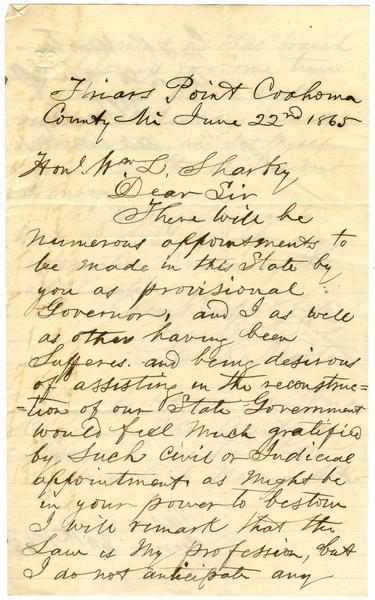 Friars Point Coahoma
County Mi June 22nd 1865
Honl. Wm L. Sharkey
Dear Sir
There will be
numerous appointments to
be made in this State by
you as provisional
Governor, and I as well
as others having been
Sufferers. and being desirous
of assisting in the reconstruc=
=tion of our State Government
would feel much gratified
by such Civil or Judicial
appointments as might be
in your power to bestow
I will remark that the
Law is My profession, but
I do not anticipate any